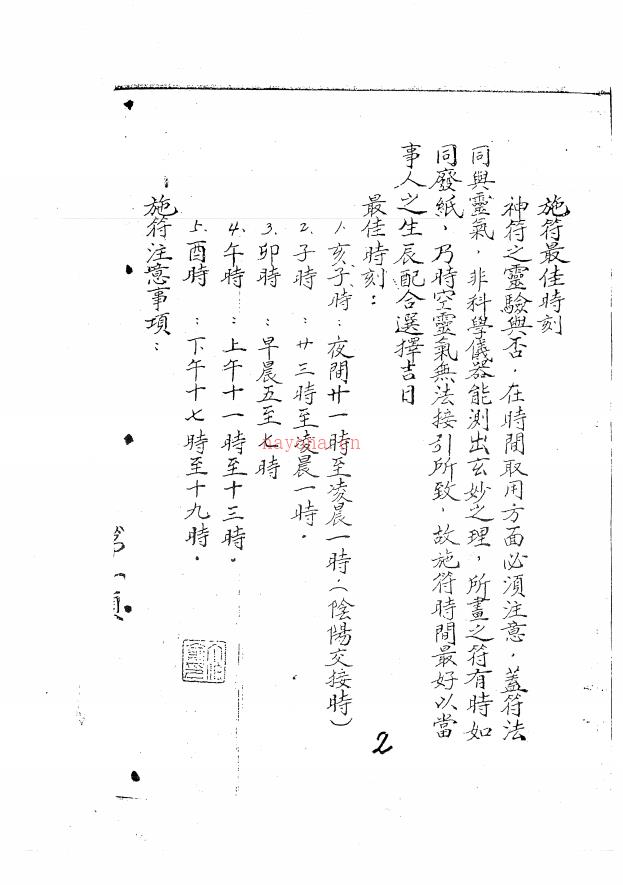 施符最佳時刻
神符之靈驗與否，在時間取用方面必須注意，蓋符法
同與靈氣，非科學儀器能測出玄妙之理，所畫之符有時如
同廢紙，乃時空靈氣無法接引所致，故施符時間最好以當
事人之生辰配合選擇吉日
最佳時刻：
1. 亥子時：夜間廿一時至凌晨一時．(陰陽交接時)
2. 子時：廿三時至凌晨一時．
3. 卯時：早晨五至七時
4. 午時：上午十一時至十三時．
5. 酉時：下午十七時至十九時．
施符注意事項：
2